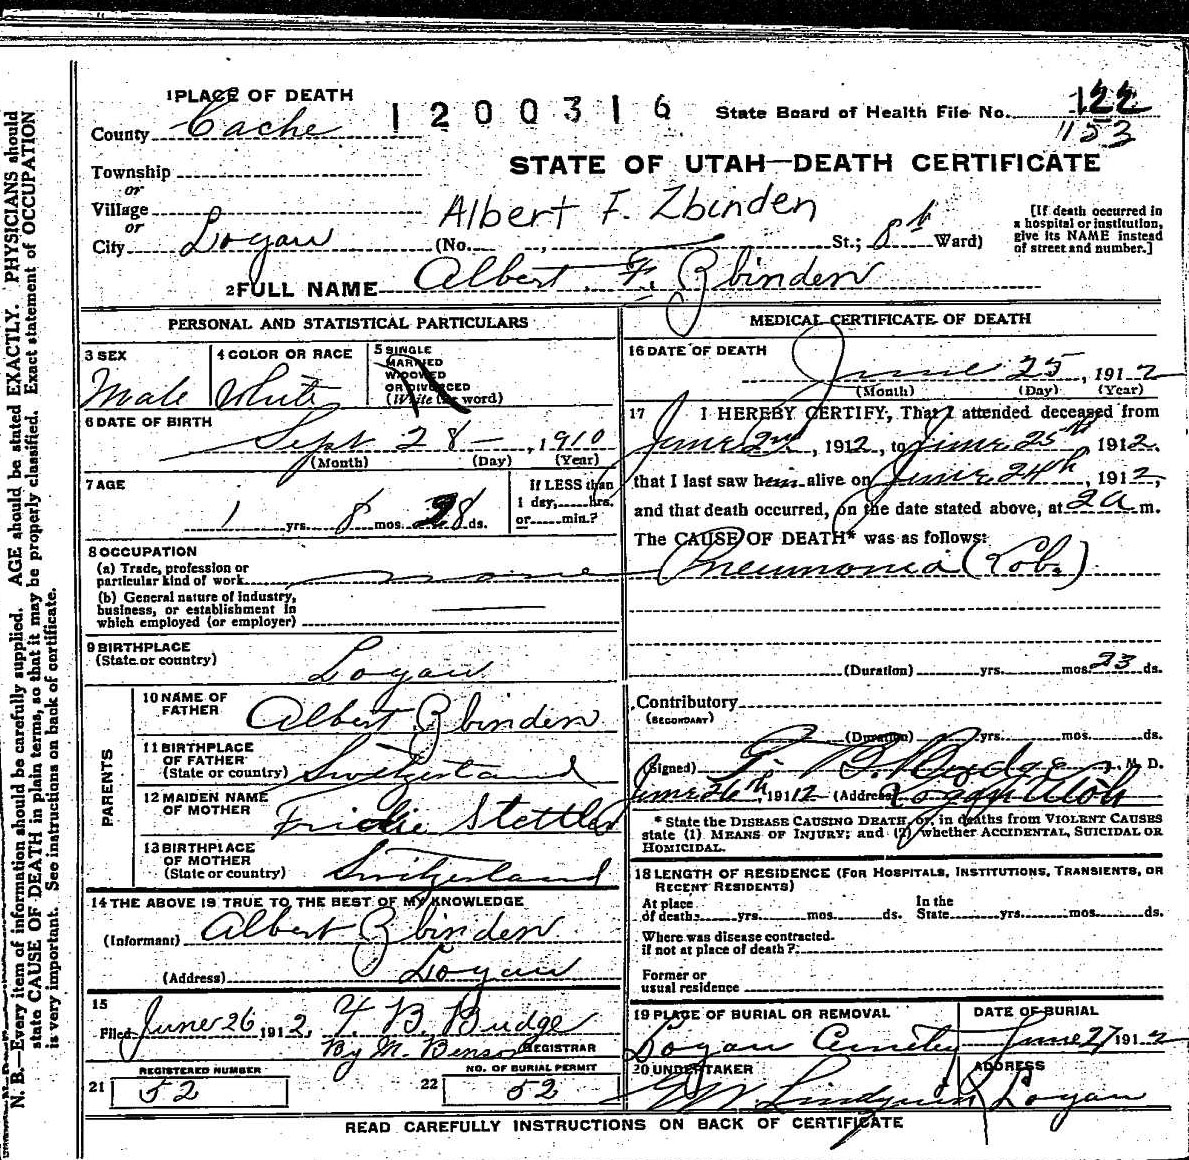 1 PLACE OF DEATH
1200316
State Board of Health File No. 122
1153
County Cache
STATE OF UTAH—DEATH CERTIFICATE
Township
or
Village
or
Albert F. Zbinden
City Logan (No. , St.; 8th Ward)
[If death occurred in
a hospital or institution,
give its NAME instead
of street and number.]
2 FULL NAME Albert F. Zbinden
PERSONAL AND STATISTICAL PARTICULARS
3 SEX
Male
4 COLOR OR RACE
White
5 SINGLE
MARRIED
WIDOWED
OR DIVORCED
(Write the word)
6 DATE OF BIRTH
Sept 28 — , 1910
(Month) (Day) (Year)
7 AGE
1 yrs. 8 mos. 28 ds.
If LESS than
1 day, hrs.
or min.?
8 OCCUPATION
(a) Trade, profession or
particular kind of work none
(b) General nature of industry,
business, or establishment in
which employed (or employer)
9 BIRTHPLACE
(State or country)
Logan
PARENTS
10 NAME OF
FATHER
Albert Zbinden
11 BIRTHPLACE
OF FATHER
(State or country)
Switzerland
12 MAIDEN NAME
OF MOTHER
Stettler
13 BIRTHPLACE
OF MOTHER
(State or country)
Switzerland
14 THE ABOVE IS TRUE TO THE BEST OF MY KNOWLEDGE
(Informant) Albert Zbinden
(Address) Logan
15
Filed June 26 1912, T. B. Budge
By M. Benson REGISTRAR
REGISTERED NUMBER
21 52
NO. OF BURIAL PERMIT
22 52
MEDICAL CERTIFICATE OF DEATH
16 DATE OF DEATH
June 25, 1912
(Month) (Day) (Year)
17 I HEREBY CERTIFY, That I attended deceased from
June 2nd, 1912, to June 25th 1912,
that I last saw him alive on June 24th, 1912,
and that death occurred, on the date stated above, at 2 a m.
The CAUSE OF DEATH* was as follows:
Pneumonia (Lob.)
(Duration) yrs. mos. 23 ds.
Contributory
(SECONDARY)
(Duration) yrs. mos. ds.
(Signed) T. B. Budge, M. D.
June 26th, 1912 (Address) Logan Utah
* State the DISEASE CAUSING DEATH, or, in deaths from VIOLENT CAUSES
state (1) MEANS OF INJURY; and (2) whether ACCIDENTAL, SUICIDAL OR
HOMICIDAL.
18 LENGTH OF RESIDENCE (FOR HOSPITALS, INSTITUTIONS, TRANSIENTS, OR
RECENT RESIDENTS)
At place
of death yrs. mos. ds.
In the
State yrs. mos. ds.
Where was disease contracted.
if not at place of death?
Former or
usual residence
19 PLACE OF BURIAL OR REMOVAL
Logan Cemetery
DATE OF BURIAL
June 27 1912
20 UNDERTAKER
Lindquist
ADDRESS
Logan
READ CAREFULLY INSTRUCTIONS ON BACK OF CERTIFICATE
N. B.—Every item of information should be carefully supplied. AGE should be stated EXACTLY. PHYSICIANS should
state CAUSE OF DEATH in plain terms, so that it may be properly classified. Exact statement of OCCUPATION
is very important. See instructions on back of certificate.